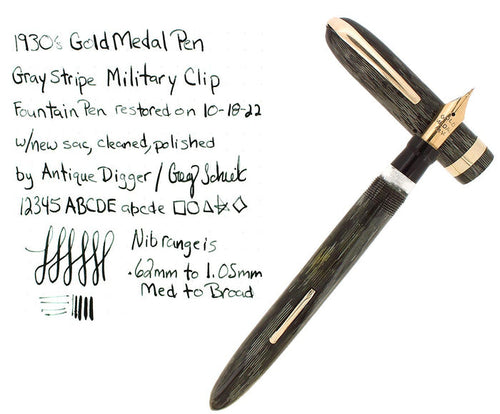 1930s Gold Medal Pen
Gray Stripe Military Clip
Fountain Pen restored on 10-18-22
w/new sac, cleaned, polished
by Antique Digger / Greg
12345 ABCDE abcde
Nib range is
.62mm to 1.05mm
Med to Broad
GOLD